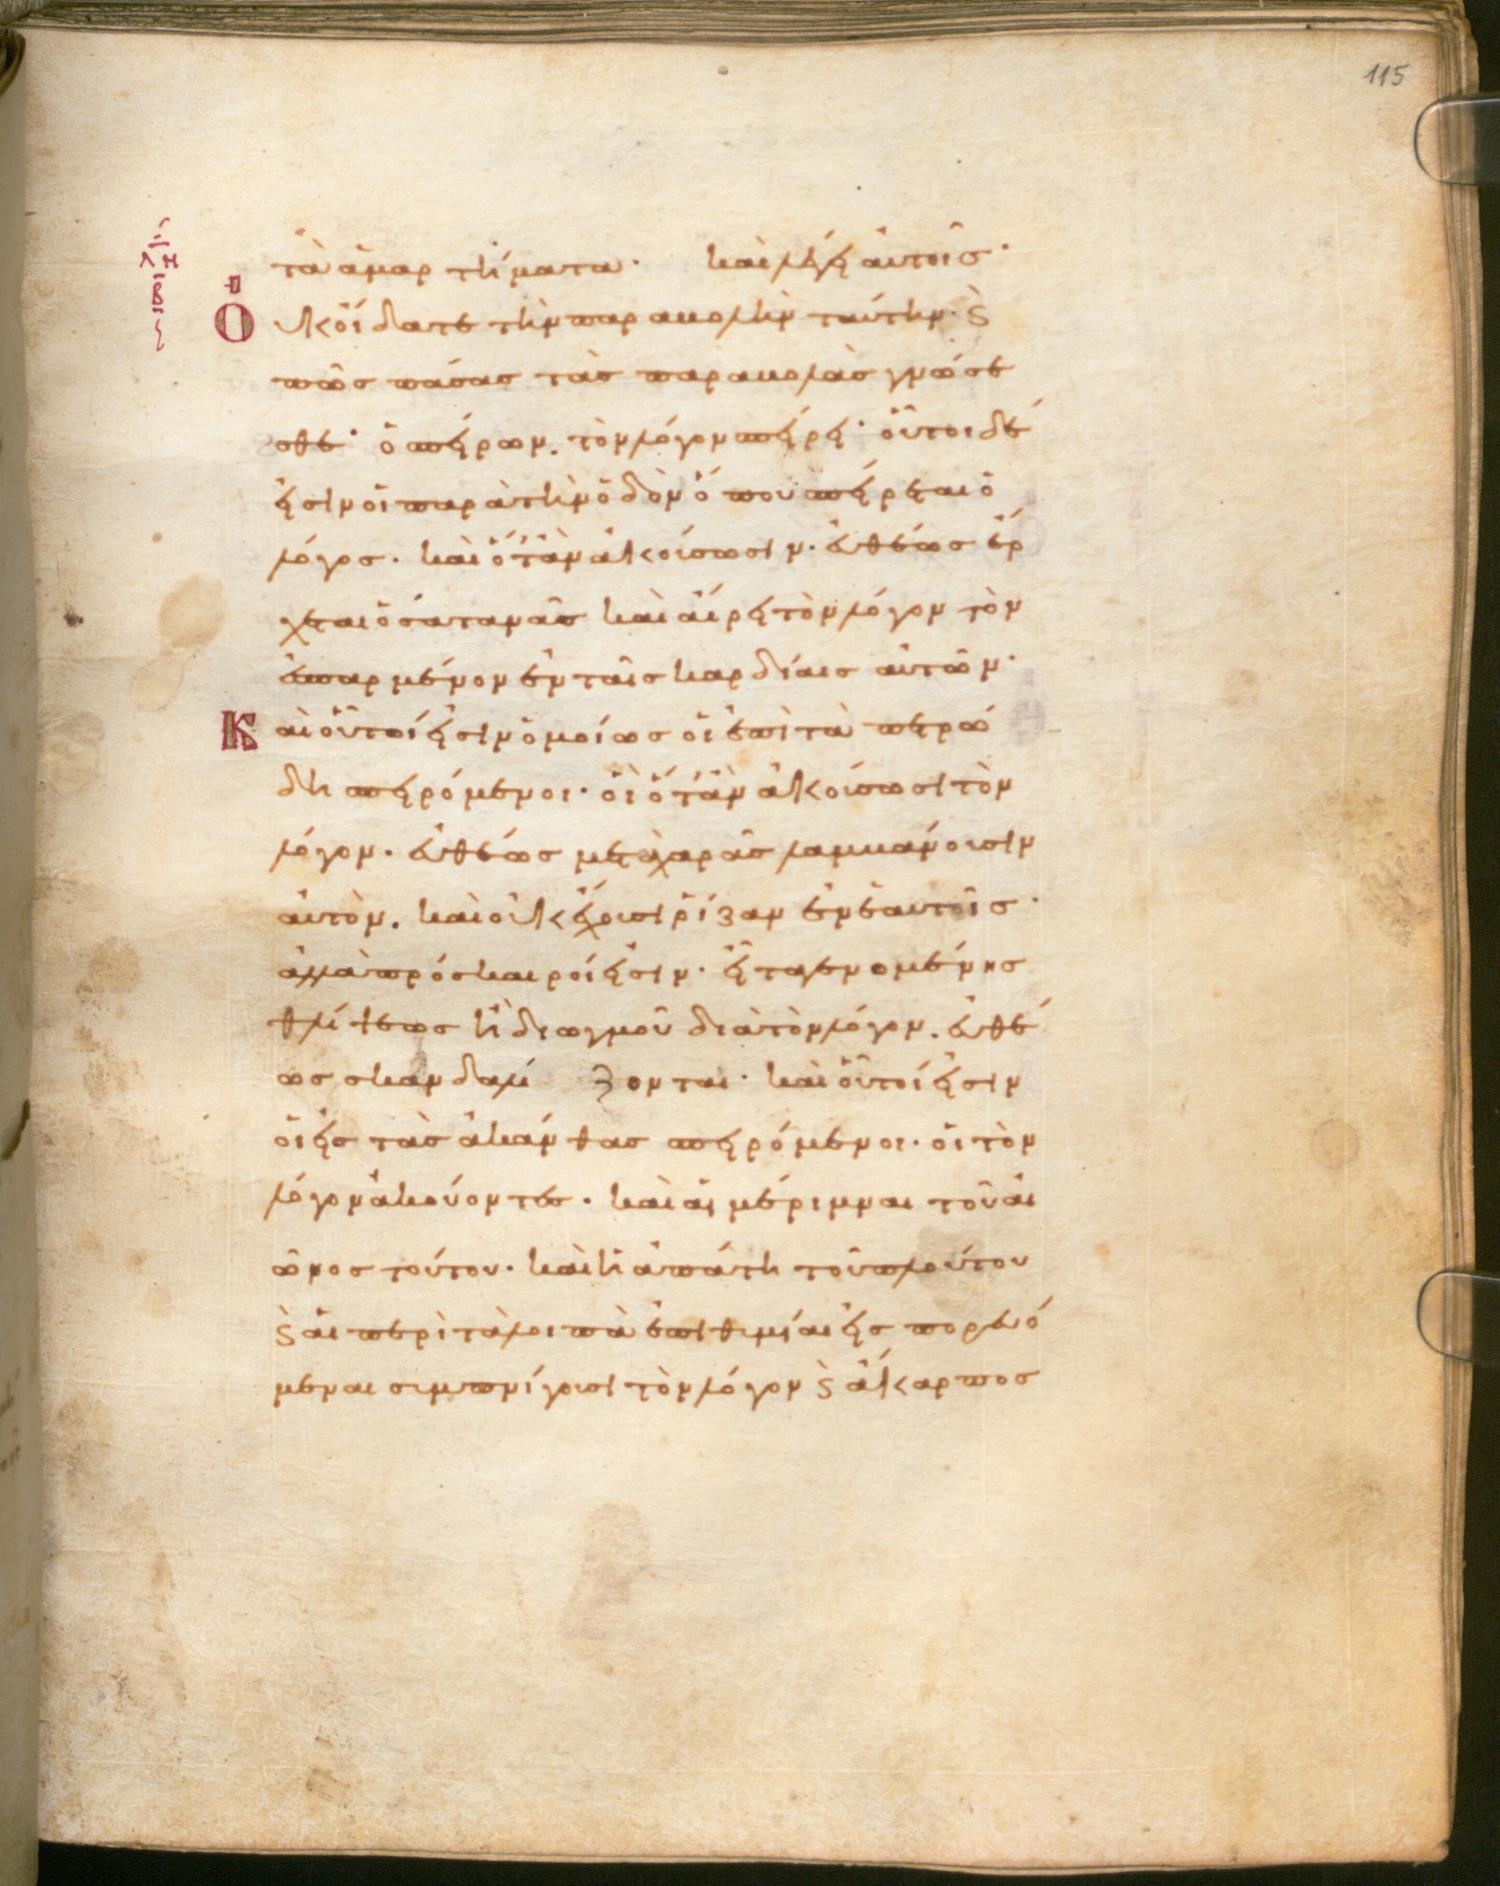 115
λη
β
τὰ ἁμαρτήματα· καὶ λέγει αὐτοῖς·
Οὐκ οἴδατε τὴν παραβολὴν ταύτην· ϛ
πῶς πάσας τὰς παραβολὰς γνώσε
σθε· ὁ σπείρων, τὸν λόγον σπείρει· οὗτοι δέ
εἰσιν οἱ παρὰ τὴν ὁδὸν ὅπου σπείρεται ὁ
λόγος· καὶ ὅταν ἀκούσωσιν· εὐθέως ἔρ
χεται ὁ σατανᾶς καὶ αἴρει τὸν λόγον τὸν
ἐσπαρμένον ἐν ταῖς καρδίαις αὐτῶν·
Καὶ οὗτοί εἰσιν ὁμοίως οἱ ἐπὶ τὰ πετρώ
δη σπειρόμενοι· οἳ ὅταν ἀκούσωσι τὸν
λόγον· εὐθέως μετὰ χαρᾶς λαμβάνουσιν
αὐτὸν, καὶ οὐκ ἔχουσι ῥίζαν ἐν ἑαυτοῖς·
ἀλλὰ πρόσκαιροί εἰσιν· εἶτα γενομένης
θλίψεως ἢ διωγμοῦ διὰ τὸν λόγον, εὐθέ
ως σκανδαλίζονται· καὶ οὗτοί εἰσιν
οἱ εἰς τὰς ἀκάνθας σπειρόμενοι· οἱ τὸν
λόγον ἀκούοντες· καὶ αἱ μέριμναι τοῦ αἰ
ῶνος τούτου· καὶ ἡ ἀπάτη τοῦ πλούτου
ϛ αἱ περὶ τὰ λοιπὰ ἐπιθυμίαι εἰς πορευό
μεναι συμπνίγουσι τὸν λόγον ϛ ἄκαρπος